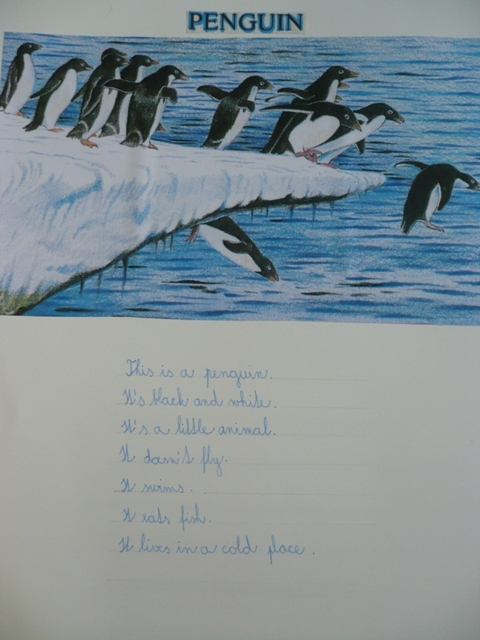 PENGUIN
This is a penguin.
It's black and white.
It's a little animal.
It doesn't fly.
It swims.
It eats fish.
It lives in a cold place.